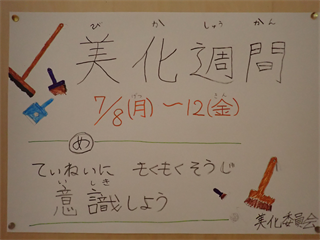 びかしゅうかん
美化週間
7/8(月)〜12(金)
め
ていねいに もくもくそうじ
いしき
意識しよう
美化委員会